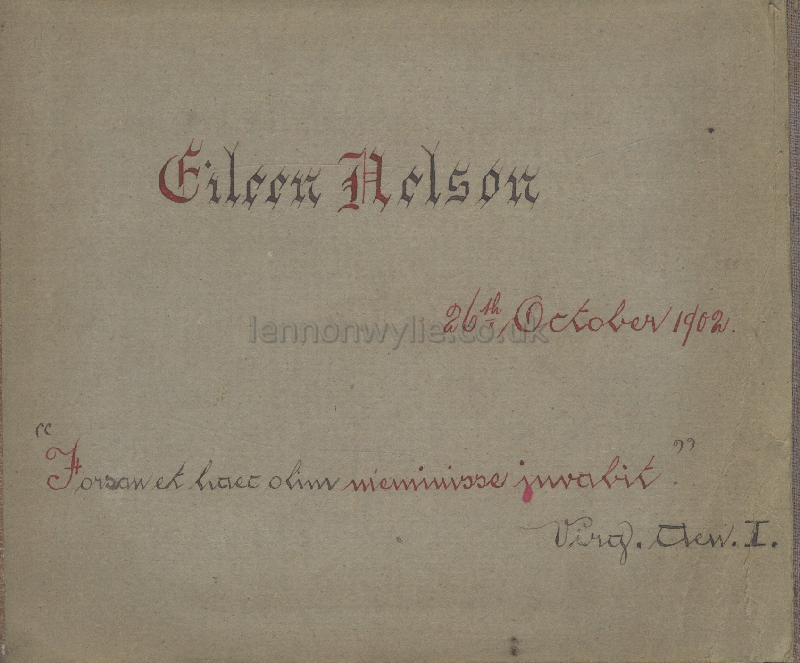 Eileen Nelson
26th October 1902.
lennonwylie.co.uk
"Forsan et haec olim meminisse juvabit".
Virg. Aen. I.